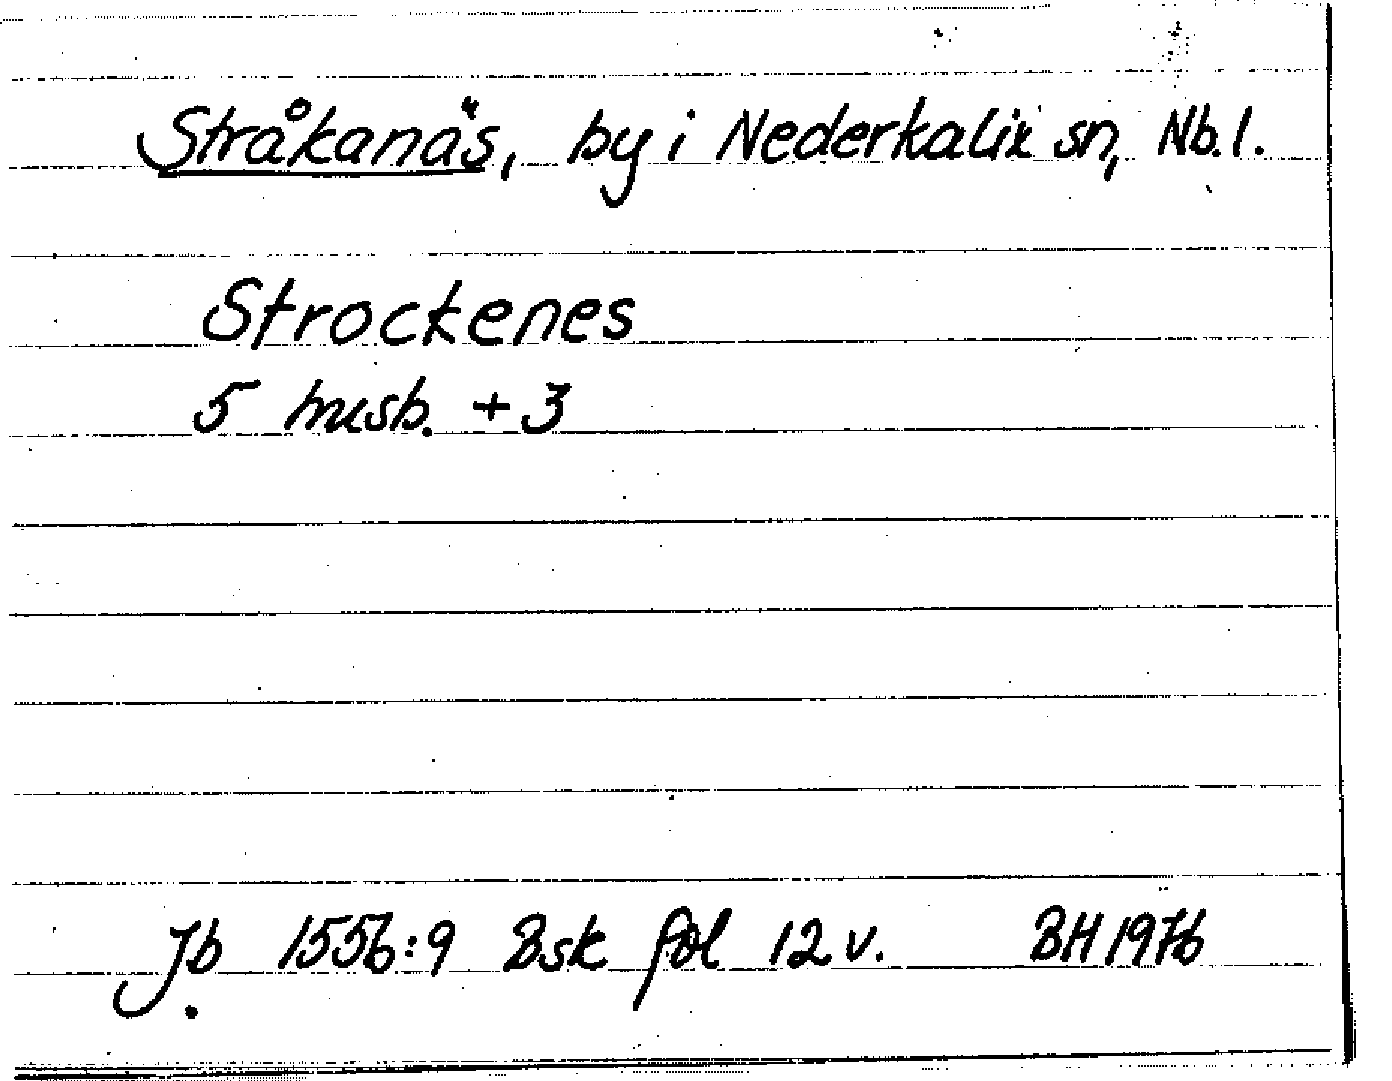 Stråkanäs, by i Nederkalix sn, Nb. l.
Strockenes
5 husb. + 3
Jb 1556:9 Bsk fol 12 v. BH 1976